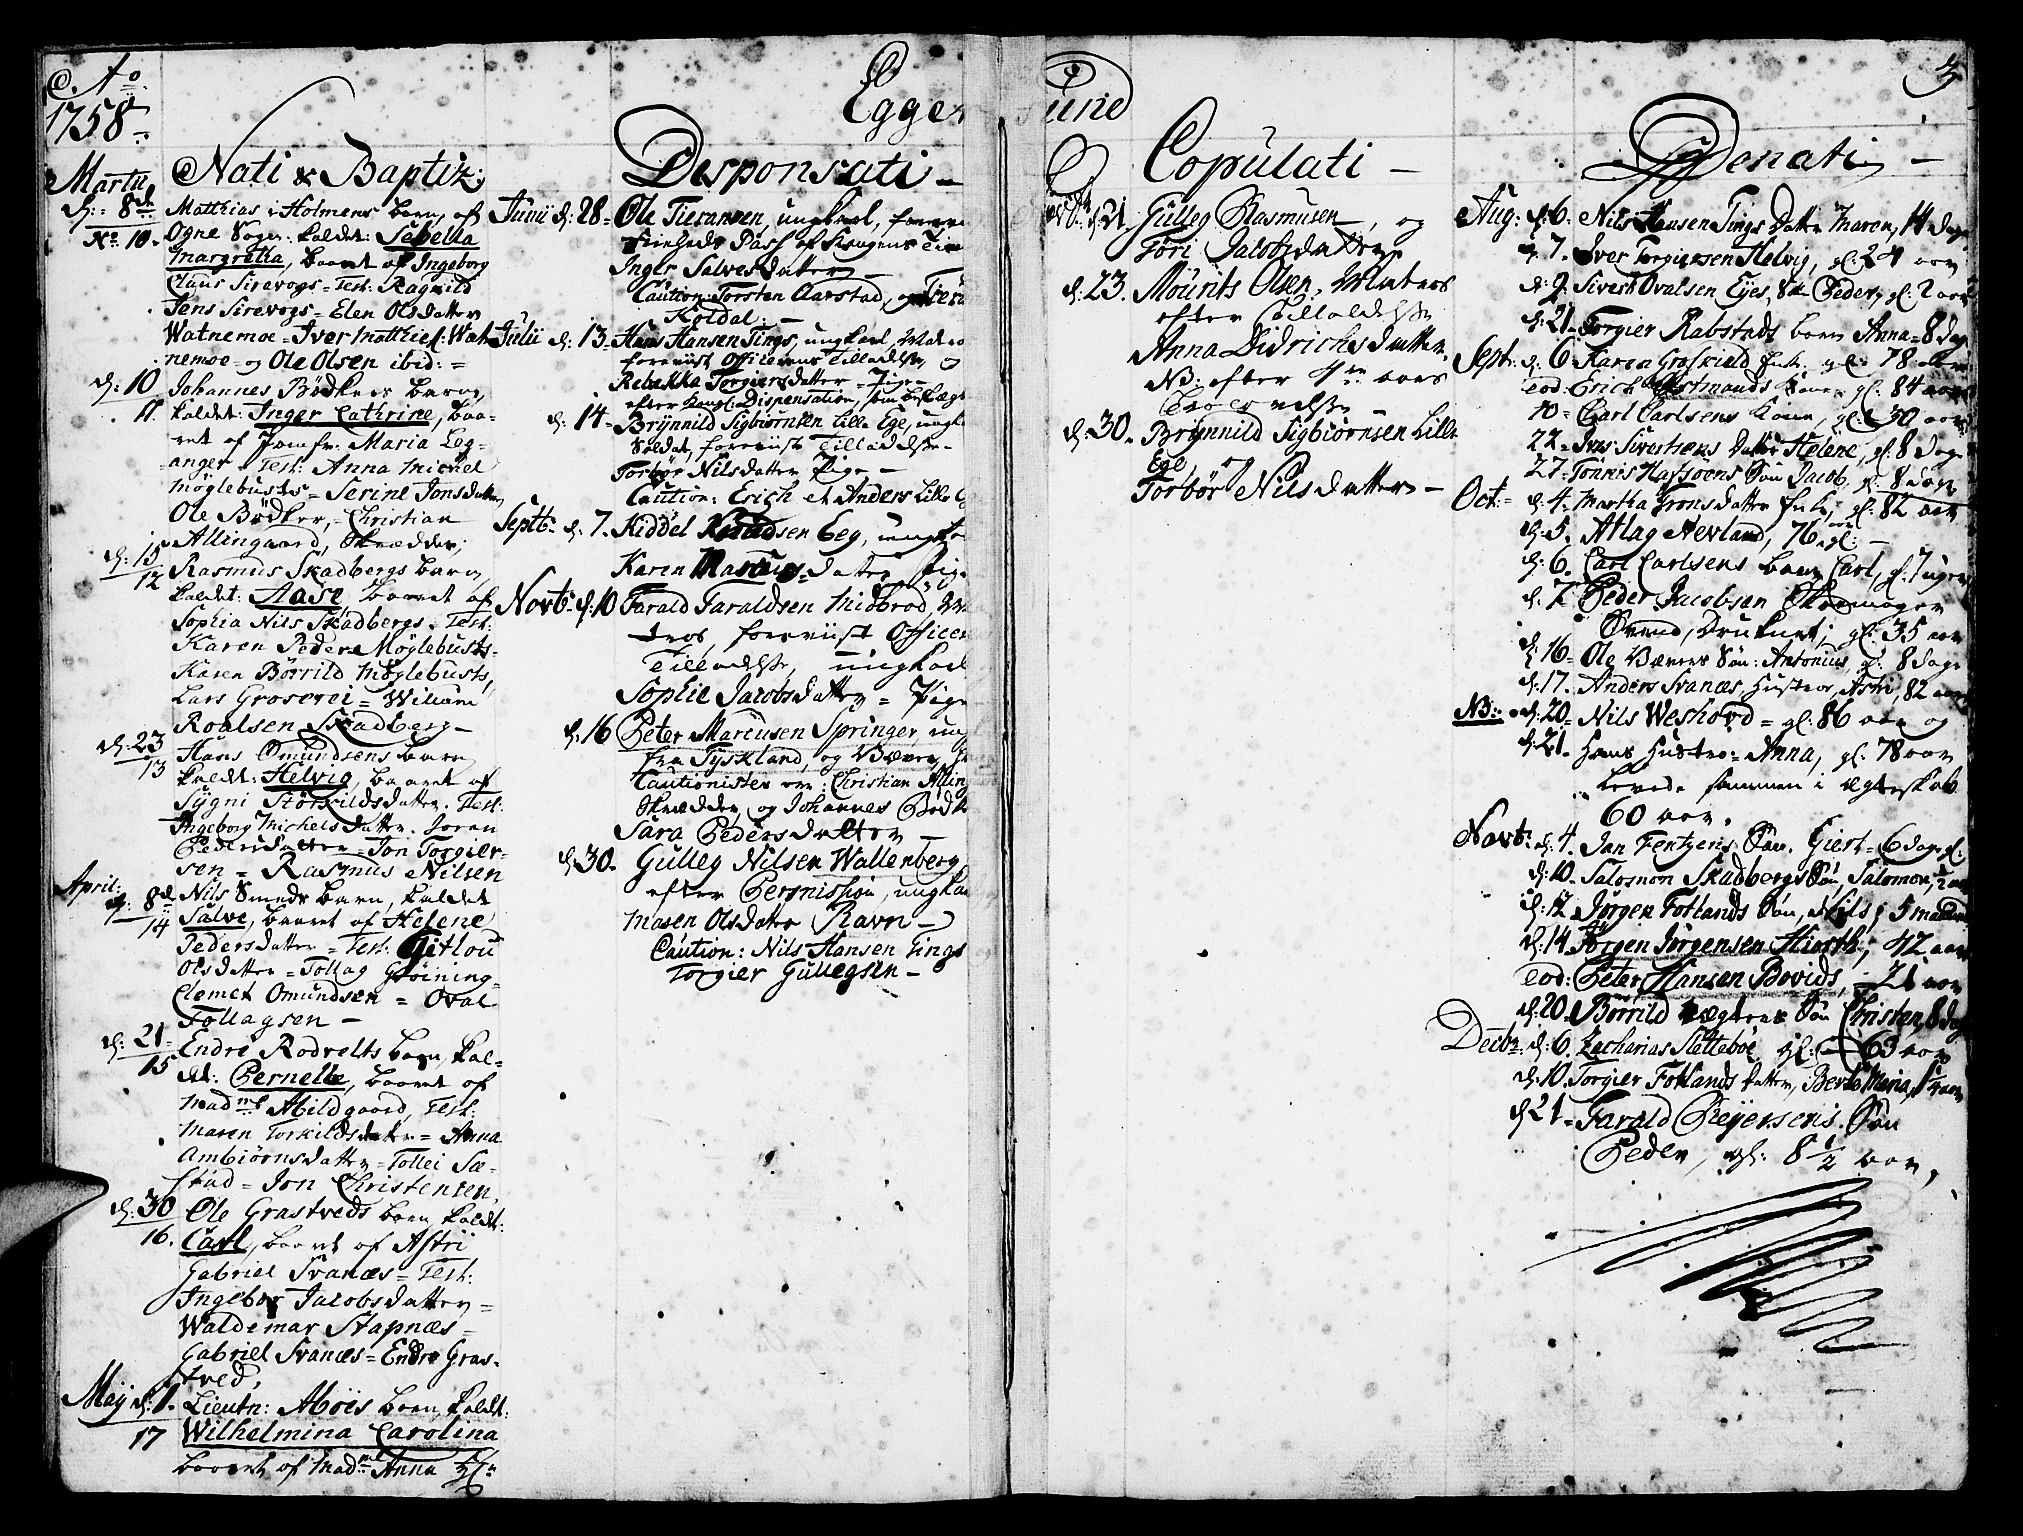 Ao
1758
Eggersund
3
Nati & Baptiz:
Martii
d: 8de
No 10.
Matthias i Holmens barn, af
Ogne Sogn: kaldet: Sebella
Margretta, baaret af Ingeborg
Claus Sirevogs = Test: Ragnild
Jens Sirevogs = Elen Olsdatter
Watnemoe = Iver Matthies: Wat
nemoe = og Ole Olsen ibid: =
d: 10
11.
Johannes Bödkers barn,
kaldet: Inger Cathrine, baa-
ret af Jomfr. Maria Leg-
anger = Test: Anna Michel
Möglebusts = Serine Jonsdatter,
Ole Bödker, = Christian
Allingaard, Skrædder;
d: 15
12
Rasmus Skadbergs barn,
kaldet: Aase, baaret af
Sophia Nils Skadbergs. Test:
Karen Peder Möglebusts =
Karen Börrild Möglebusts,
Lars Groserei = Willum
Roalsen Skadberg –
d: 23
13
Hans Omundsens barn,
kaldt: Helvig, baaret af
Sygni Störkildsdatter. Test:
Ingeborg Michelsdatter. Joren
Pedersdatter = Jon Torgier-
sen = Rasmus Nilsen
April:
d: 8de
14
Nils Smeds barn, kaldet
Salve, baaret af Helene
Pedersdatter = Test: Gitlou
Olsdatter = Tollag Gröining =
Clemet Omundsen = Oval
Tollagsen –
d: 21
15
Endre Rodvelts barn, kal-
det: Pernelle, baaret af
Madme Abildgaard, Test:
Maren Torkildsdatter = Anna
Ambiörnsdatter = Tollei Sæ-
stad = Jon Christensen.
d: 30
16.
Ole Grastveds barn kaldt:
Carl, baaret af Astri
Gabriel Svanæs = Test:
Ingebor Jacobsdatter =
Waldemar Stapnæs =
Gabriel Svanæs = Endre Gras-
tved.
Maij d: 1.
17
Lieutn: Moïs barn, kaldt:
Wilhelmina Carolina
baaret af Madme Anna
Desponsati –
Junii d: 28 – Ole Tieransen, ungkarl,
Frieheds Pass af Krogens
Inger Salvesdatter –
Caution: Torsten Aarstad, og
Koldal: –
Julii d: 13. Hans Hansen Tings, ungkarl, Matro
foreviist Officerens Tilladelse, og
Rebekka Torgiersdatter = Pige =
efter Kongl: Dispensation,
d: 14 – Brynnild Sigbiörnsen Lille Ege, ungk
Soldat, foreviist Tilladelse –
Torbör Nilsdatter Pige –
Caution: Erich et Anders Lille
Septb: d: 7. Kiddel Knudsen Eeg, ungka
Karen Marcusdatter Pige
Novb: d: 10 Tarald Taraldsen Midbröd,
tros, foreviist Officer
Tilladelse, ungkarl
Sophie Jacobsdatter = Pige
d: 16 Peter Marcusen Springer, ung
fra Tyskland, og Væver,
Cautionister ere: Christian Alling
Skrædder, og Johannes Bödk
Sara Pedersdatter –
d: 30. Gulleg Nilsen Wallenberg,
efter Permission, ungka
Maren Olsdatter Ravn –
Caution: Nils Hansen Tings
Torgier Gullegsen –
Copulati –
d: 21 Gulleg Rasmusen, og
Töri Jacobsdatter
d: 23. Mourits Olsen, Matros
efter Tilladelse
Anna Didrichsdatter.
NB: efter 4re aars
d: 30. Brynnild Sigbiörnsen Lille
Ege, og
Torbör Nilsdatter –
Denati –
Aug: d: 6. Nils Hansen Tings Datter Maren, 14 dage
d: 7. Iver Torgiersen Helvig, gl: 24 aar
d: 9. Sivert Ovalsen Eyes, Sön Peder, gl: 2 aar
d: 21. Torgier Rabstads barn Anna = 8 dage
Sept: d: 6. Karen Groskield Enke, gl: 78 aar
eod: Erich
gl: 84 aar
10 = Carl Carlsens Kone, gl: 30 aar
22 = Datter Helene, gl: 8 dage
27: Tönnis Hafsöens Sön Jacob, gl: 8 dage
Oct: d: 4. Martha Gronsdatter Enke, gl: 82 aar
d: 5. Atlag Nevland, 76 aar gl: –
d: 6. Carl Carlsens barn, Carl, gl: 7 uger
d: 7 Peder Jacobsen Skoemager
Svend, Druknet; gl: 35 aar
d: 16 – Ole Værens Sön: Antonius, gl: 8 dage
d: 17. Anders Svanæs Hustroe, Astri, 82 aar
NB: d: 20 – Nils Weshovd = gl: 86 aar og
d: 21. Hans Hustroe: Anna, gl: 78 aar
levede sammen i Egteskab
60 aar.
Novb: d: 4. Jan Fentzens Sön. Giert = 6 dage gl:
d: 10. Salomon Skadbergs Sön, Salomon,
d: 12 Jörgen Fotlands Sön, Nils; 5 maaned
d: 14 Jörgen Jörgensen Hiorth; 42 aar
eod: Peter Hansen Bovids, – 21 aar
d: 20 – Börrild Sön Christen, 8 dage
Decb: d: 6. Zacharias Sletteböe gl: – 63 aar
d: 10. Torgier Fotlands Datter, Berte Maria,
d: 21 – Tarald Reyersens Sön
Peder, gl: 8 1/2 aar,